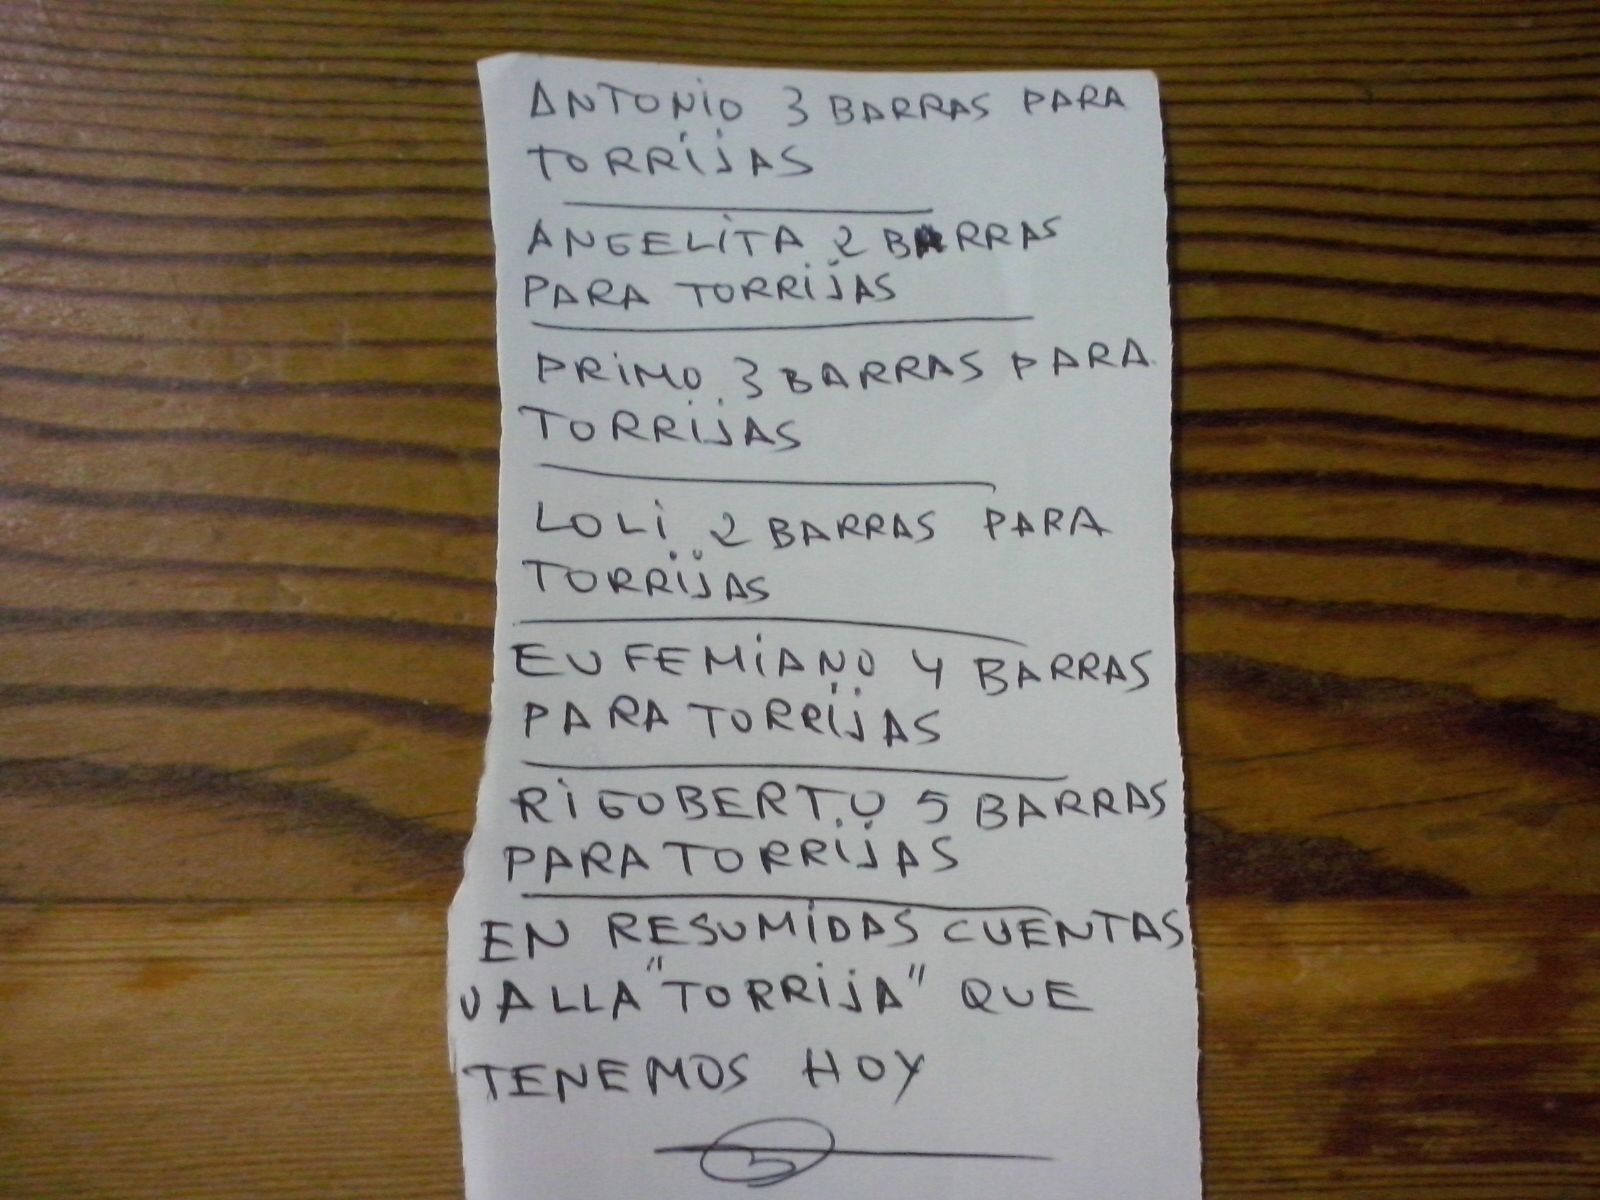 ANTONIO 3 BARRAS PARA
TORRIJAS
ANGELITA 2 BARRAS
PARA TORRIJAS
PRIMO 3 BARRAS PARA
TORRIJAS
LOLI 2 BARRAS PARA
TORRIJAS
EUFEMIANO 4 BARRAS
PARA TORRIJAS
RIGOBERTO 5 BARRAS
PARA TORRIJAS
EN RESUMIDAS CUENTAS
VALLA "TORRIJA" QUE
TENEMOS HOY